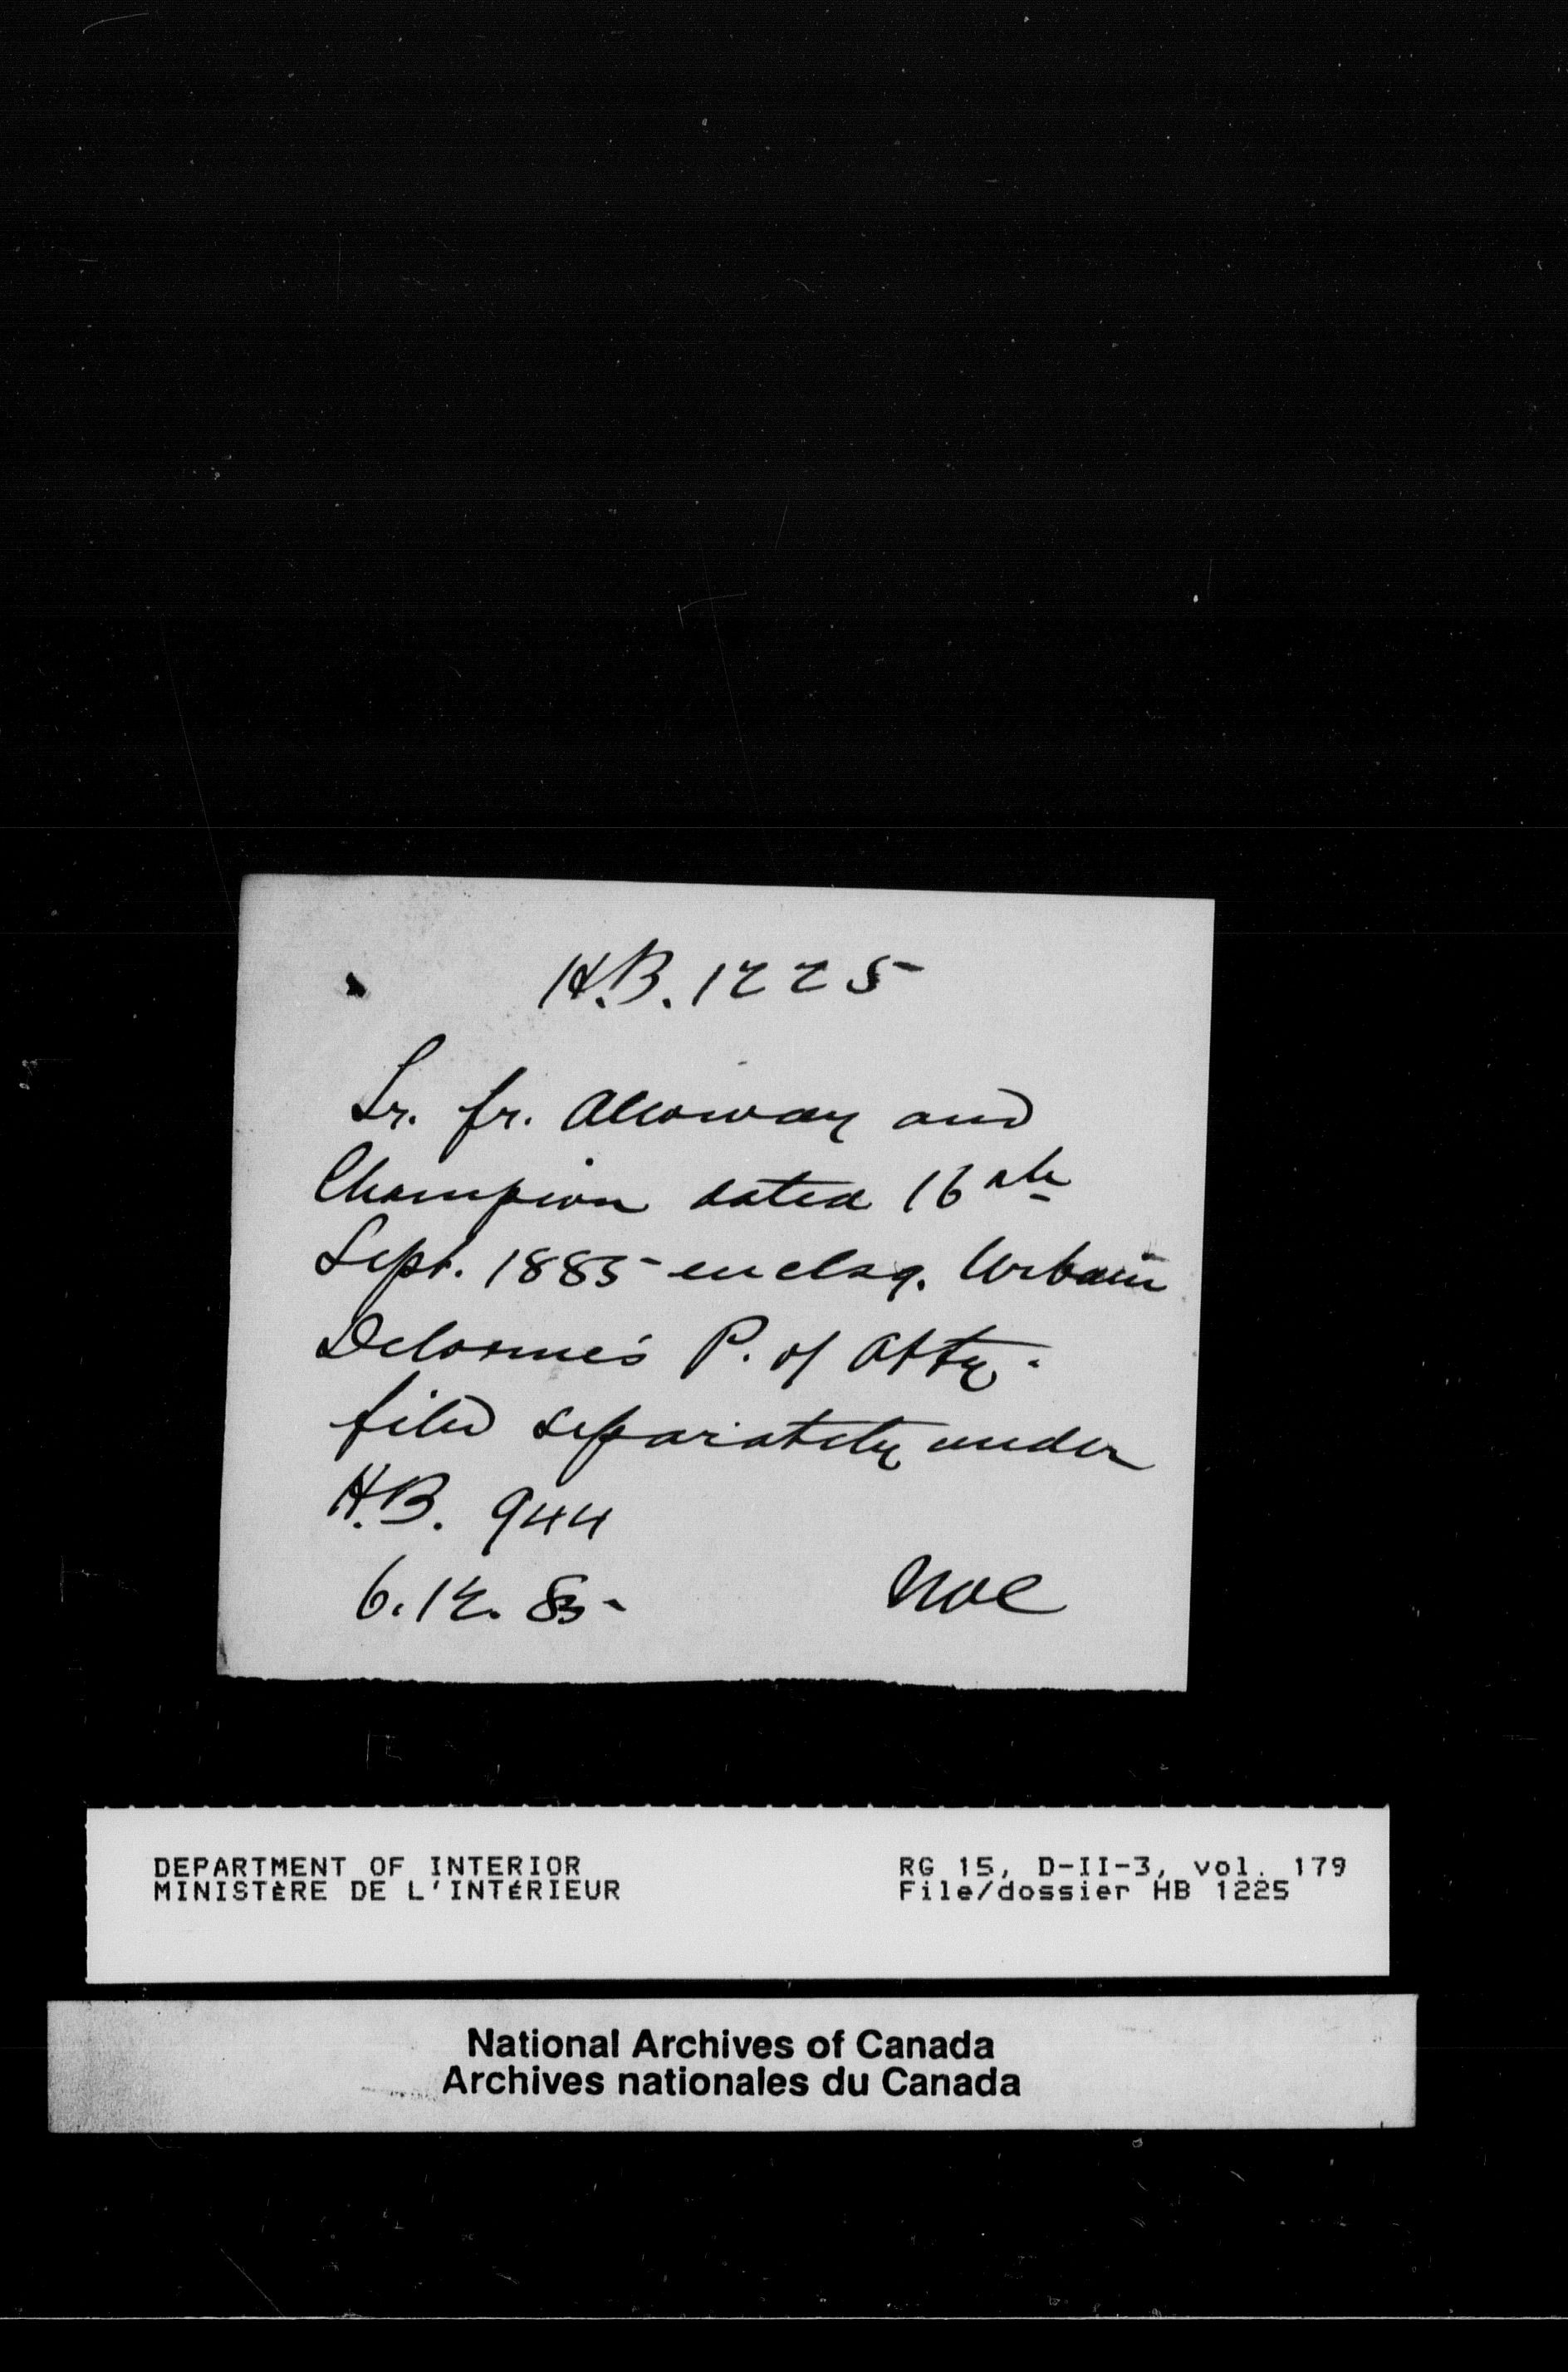 H.B. 1225
Lr. fr. Alloway and
Champion dated 16th
Sept. 1885 enclsg. Urbain
Delorme's P. of Atty.
filed separately under
H.B. 944
6.12.85
DEPARTMENT OF INTERIOR
MINISTÈRE DE L'INTÉRIEUR
RG 15, D-II-3, vol. 179
File/dossier HB 1225
National Archives of Canada
Archives nationales du Canada